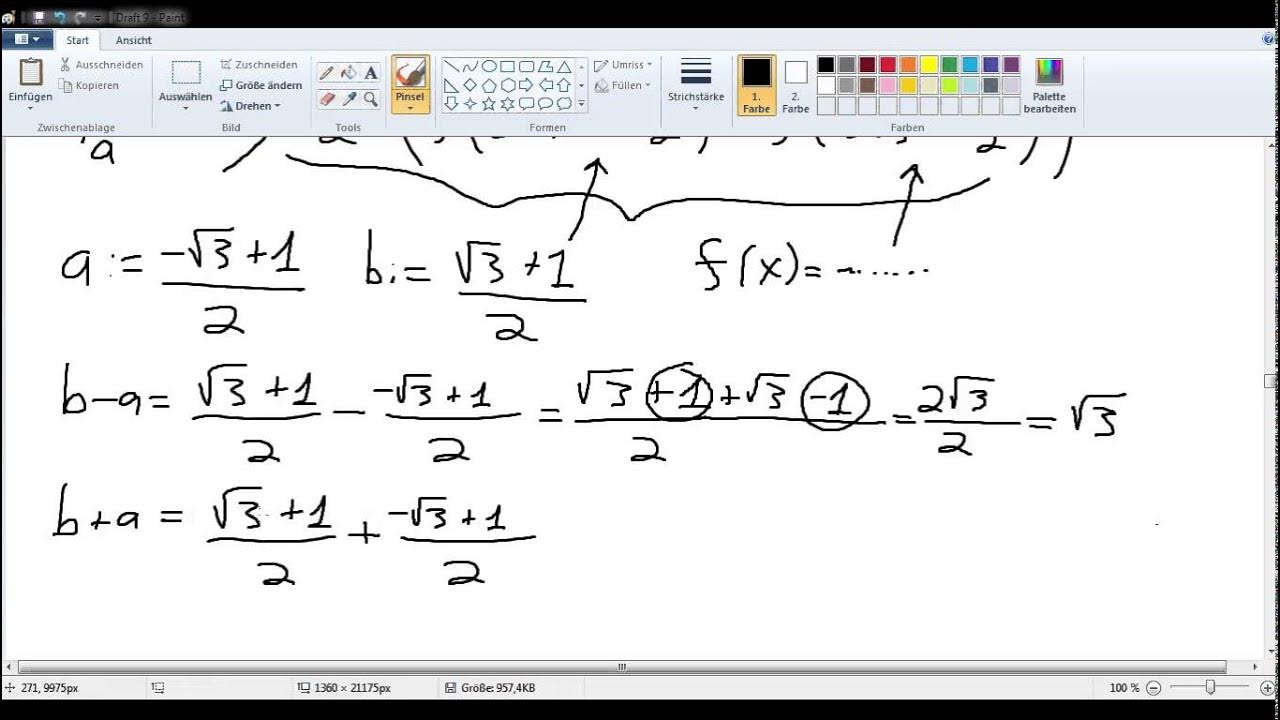 Draft 9 - Paint
Start Ansicht
Einfügen
Ausschneiden
Kopieren
Zwischenablage
Auswählen
Zuschneiden
Größe ändern
Drehen
Bild
Tools
Pinsel
Umriss
Füllen
Formen
Strichstärke
1. Farbe
2. Farbe
Palette bearbeiten
Farben
a
a := (-√3 + 1)/2 b := (√3 + 1)/2 f(x) = ........
b - a = (√3 + 1)/2 - (-√3 + 1)/2 = (√3 + 1 + √3 - 1)/2 = 2√3/2 = √3
b + a = (√3 + 1)/2 + (-√3 + 1)/2
271, 9975px 1360 × 21175px Größe: 957,4KB 100 %